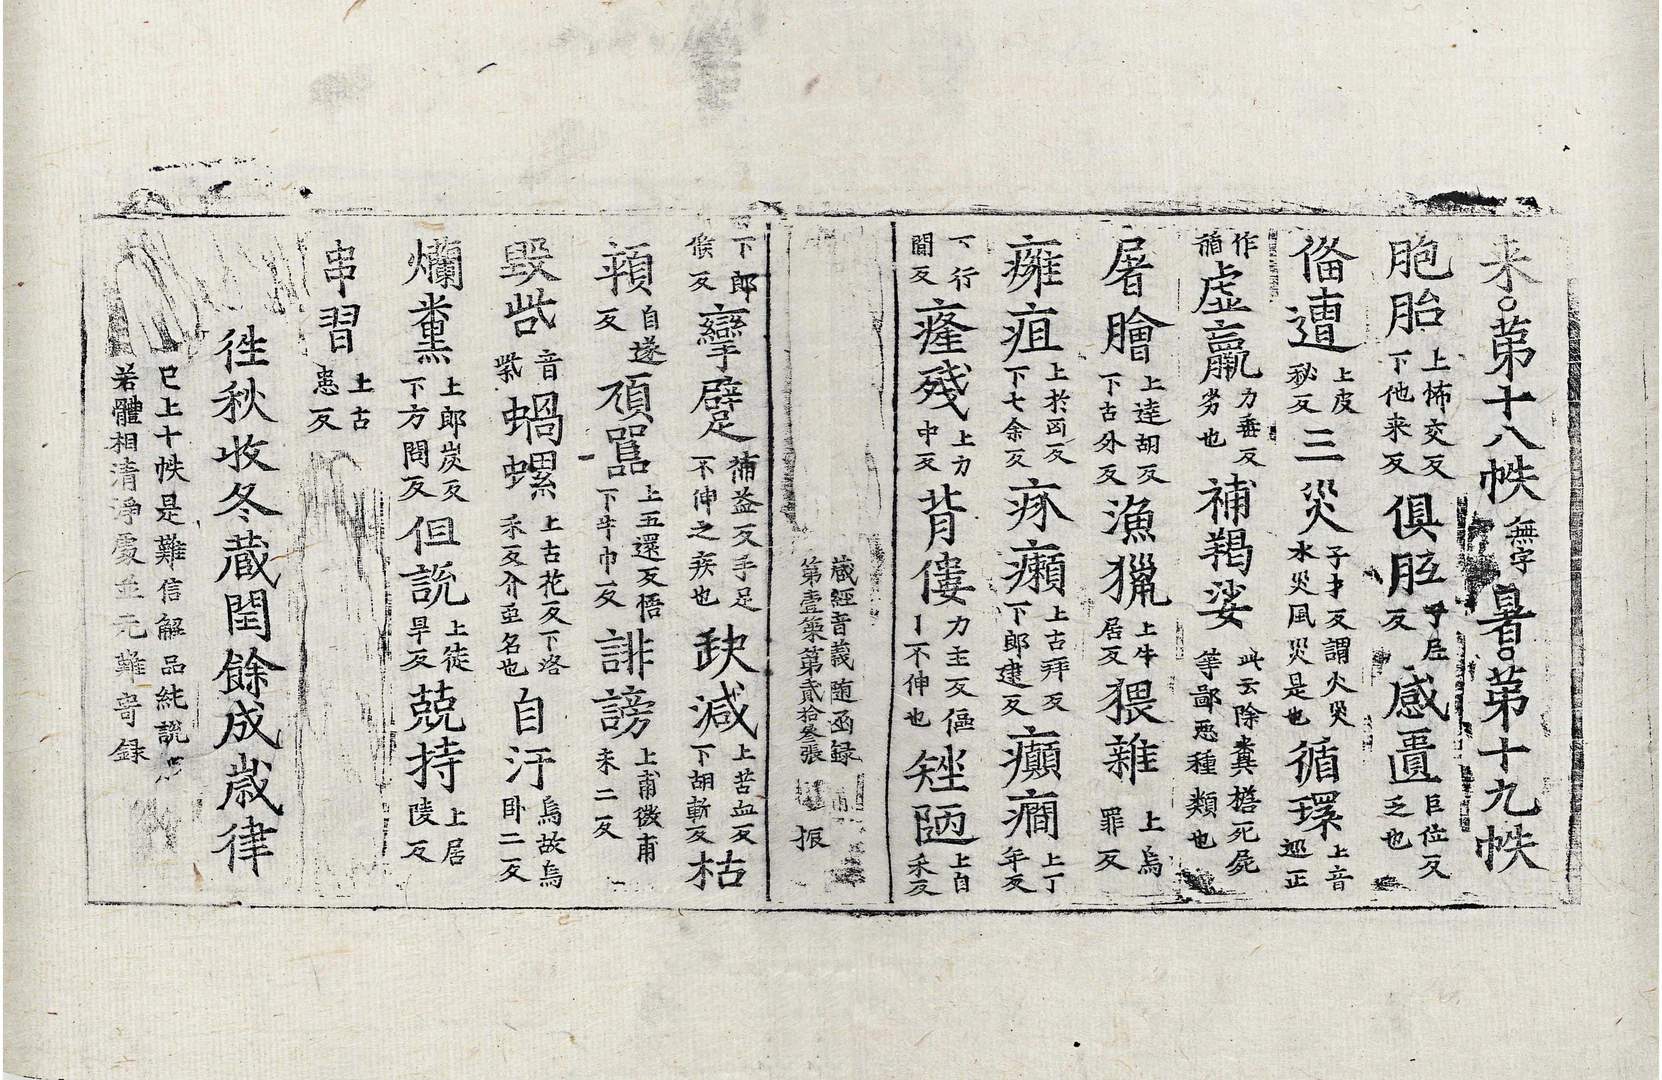 来○第十八帙無字暑○第十九帙
胞胎上怖交反下他来反俱胝丁尼反感匱巨位反乏也
俻遭上皮秘反三災子才反謂火災水災風災是也循環上音巡正
作㣲虚羸力垂反劣也補羯娑此云除糞檐死屍等鄙悪種類也
屠膾上達胡反下古外反漁獵上牛居反猥雜上烏罪反
癰疽上於㓙反下七余反疥癩上古拜反下郎逮反癲癇上丁年反
下行間反癃殘上力中反背僂力主反傴丨不伸也矬陋上自禾反
蔵経音義随函録
第壹筞第貳拾叄張 振
下郎候反攣躄補益反手足不伸之疾也缺減上苦血反下胡斬反枯
顇自遂反頑嚚上五還反悟下牛巾反誹謗上甫微甫未二反
毀呰音紫蝸螺上古花反下洛禾反介虫名也自汙烏故烏卧二反
爛糞上郎炭反下方問反但說上徒旱反兢持上居陵反
串習上古患反
徃秋收冬蔵閏餘成歳律
已上十帙是難信解品純說
若體相清淨處並元難竒録